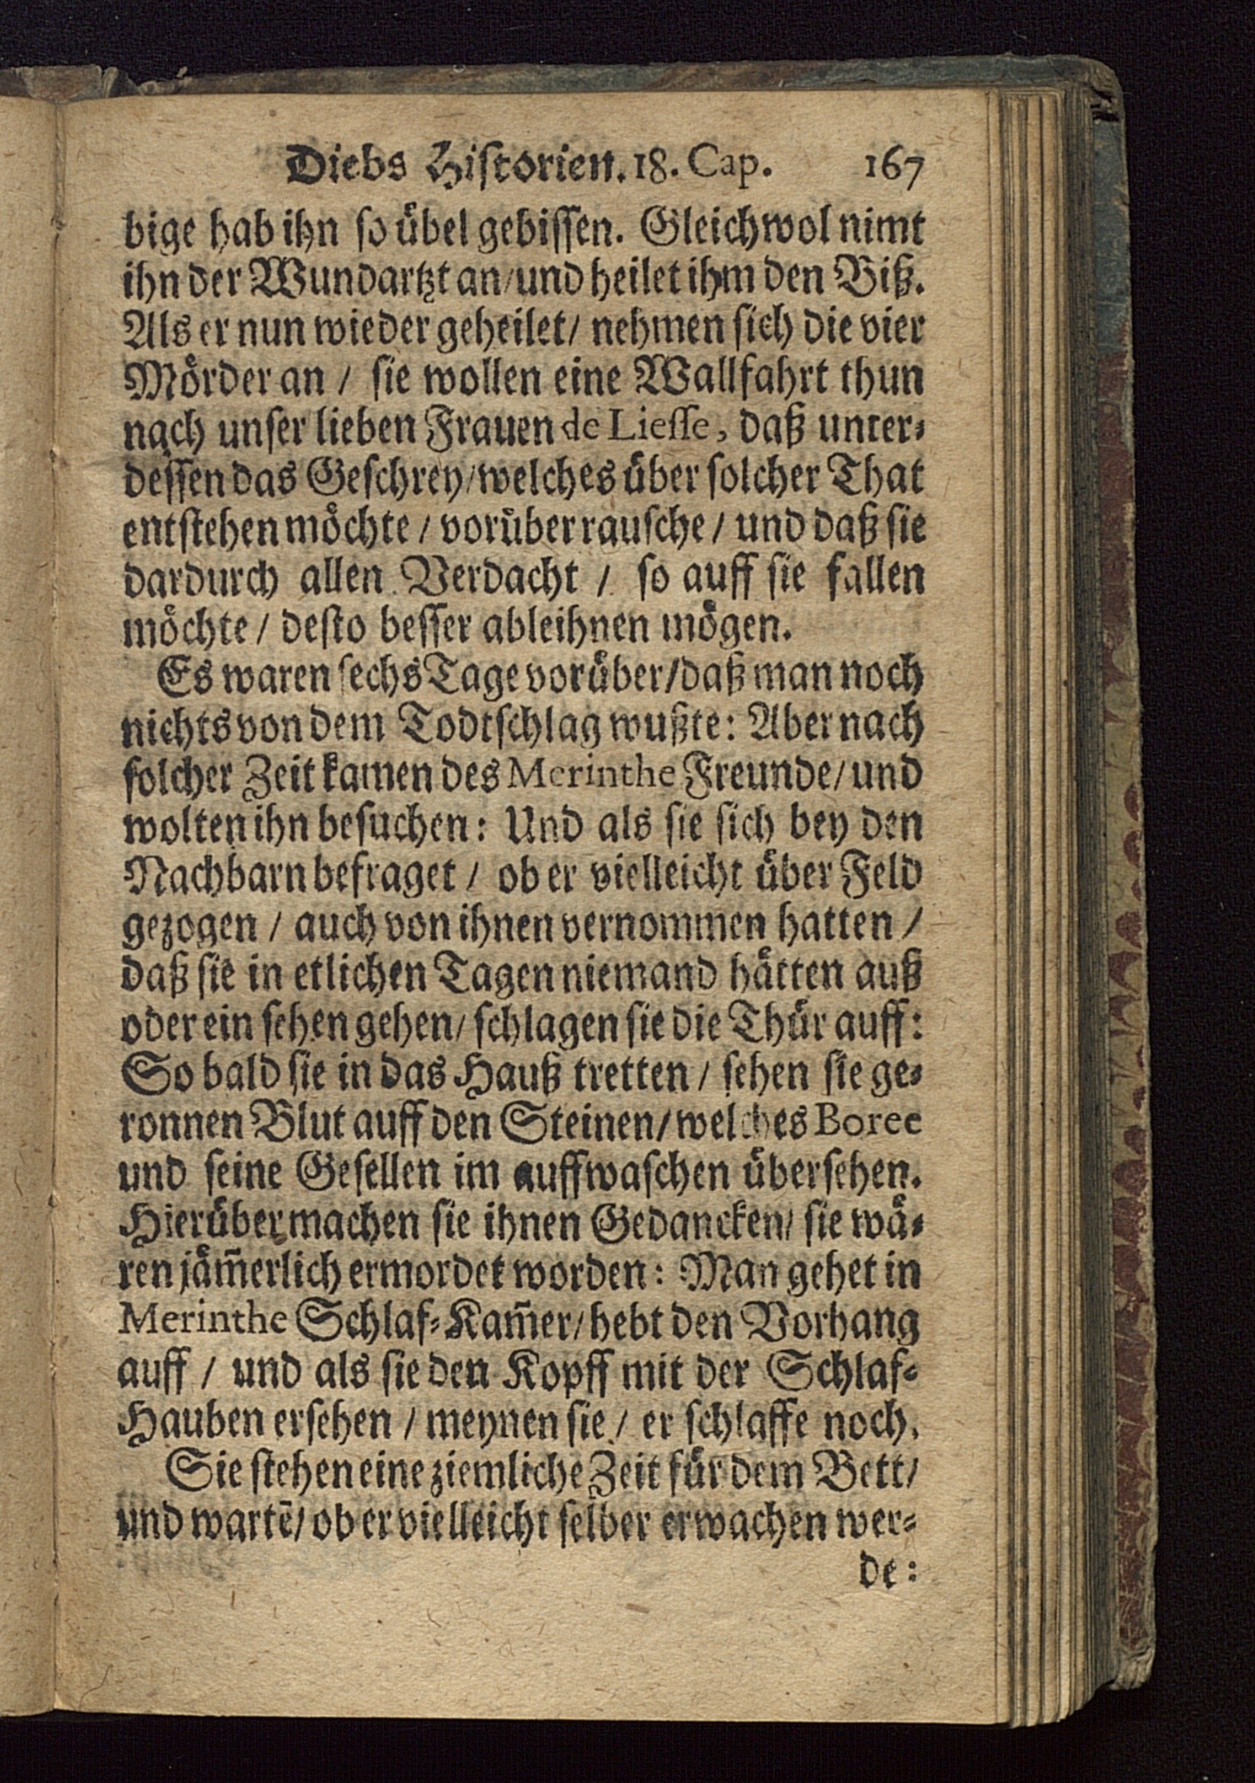 Diebs Historien. 18. Cap. 167
bige hab ihn so übel gebissen. Gleichwol nimt
ihn der Wundartzt an/ und heilet ihm den Biß.
Als er nun wieder geheilet/ nehmen sich die vier
Mörder an / sie wollen eine Wallfahrt thun
nach unser lieben Frauen de Liesse, daß unter-
dessen das Geschrey/ welches über solcher That
entstehen möchte / vorüber rausche / und daß sie
dardurch allen Verdacht / so auff sie fallen
möchte / desto besser ableihnen mögen.
Es waren sechs Tage vorüber/ daß man noch
nichts von dem Todtschlag wußte: Aber nach
solcher Zeit kamen des Merinthe Freunde/ und
wolten ihn besuchen: Und als sie sich bey den
Nachbarn befraget / ob er vielleicht über Feld
gezogen / auch von ihnen vernommen hatten /
daß sie in etlichen Tagen niemand hätten auß
oder ein sehen gehen/ schlagen sie die Thür auff:
So bald sie in das Hauß tretten / sehen sie ge-
ronnen Blut auff den Steinen/ welches Boree
und seine Gesellen im auffwaschen übersehen.
Hierüber machen sie ihnen Gedancken/ sie wä-
ren jäm̃erlich ermordet worden: Man gehet in
Merinthe Schlaf-Kam̃er/ hebt den Vorhang
auff / und als sie den Kopff mit der Schlaf-
Hauben ersehen / meynen sie / er schlaffe noch.
Sie stehen eine ziemliche Zeit für dem Bett/
und wartē/ ob er vielleicht selber erwachen wer-
de: